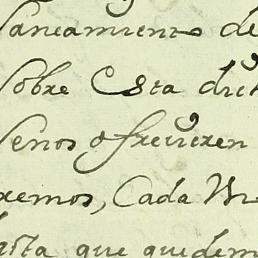 Saneamiento de
Sobre Esta dich
Senos ofrecieren
remos, Cada Un
hasta que quedem